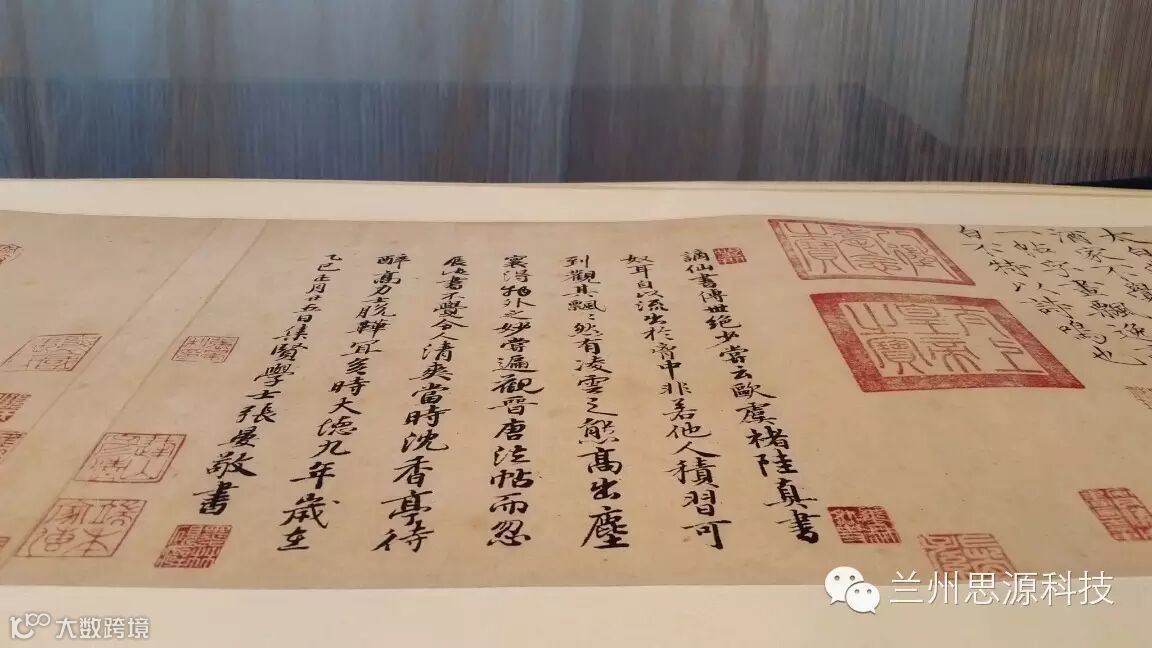 太白
酒家不覺
一帖字畫飄逸
白不特以詩鳴也
八徵耄念之寶
太上皇帝之寶
謫仙書傳世絕少嘗云歐虞褚陸真書
奴耳自以流出於胷中非若他人積習可
到觀其飄〻然有凌雲之態高出塵
寰得物外之妙嘗遍觀晉唐法帖而忽
展此書不覺令人清爽當時沈香亭待
醉高力士脫鞾宜矣時大德九年歲在
乙巳正月廿五日集賢學士張晏敬書
兰州思源科技
大数跨境